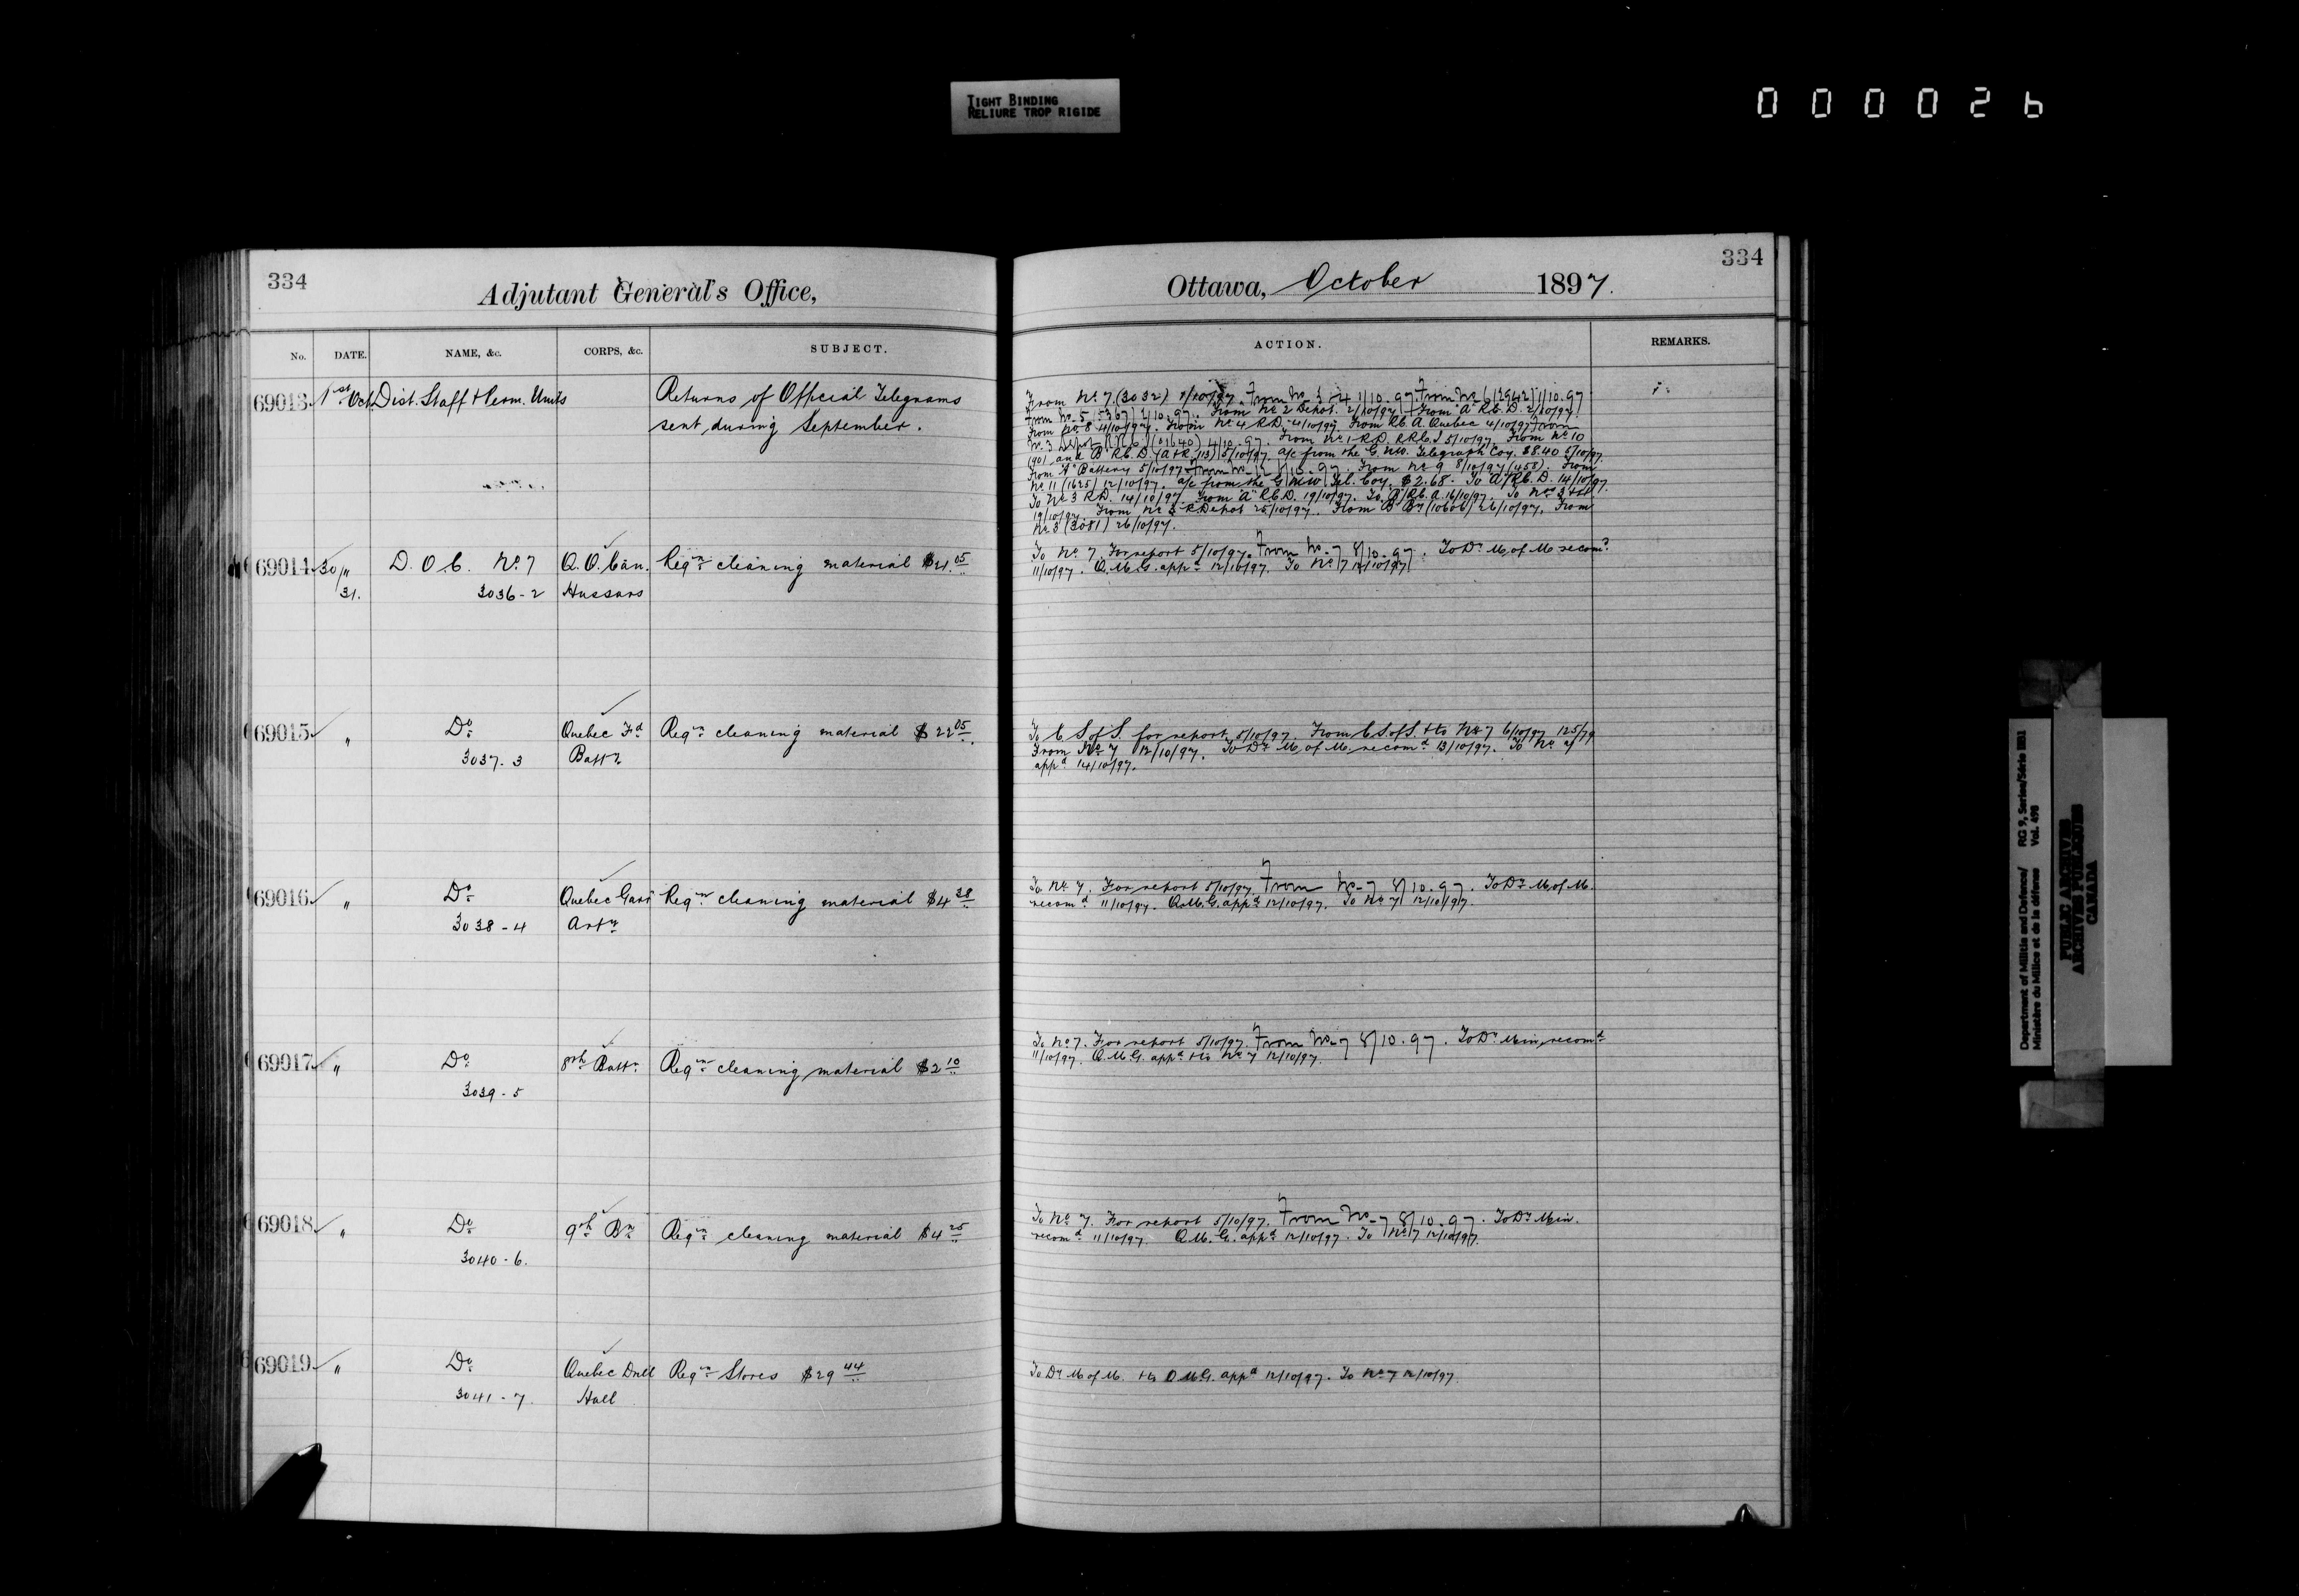 TIGHT BINDING
RELIURE TROP RIGIDE
000026
334
Adjutant General's Office,
No. DATE. NAME, &c. CORPS, &c. SUBJECT.
69013 1st Oct. Dist. Staff + Perm. Units Returns of Official Telegrams
sent during September.
69014 30/" D. O. C. No. 7 Q. O. Can. Reqn. cleaning material $21.05
31. 3036-2 Hussars
69015 " Do. Quebec Fd Reqn. cleaning material $22.05
3037-3 Batty.
69016 " Do. Quebec Garr Reqn. cleaning material $4.38
3038-4 Arty.
69017 " Do. 8th Battn. Reqn. cleaning material $2.10
3039-5
69018 " Do. 9th Bn. Reqn. cleaning material $4.25
3040-6.
69019 " Do. Quebec Drill Reqn. Stores $29.44
3041-7. Hall
334
Ottawa, October 1897.
ACTION. REMARKS.
From No. 7. (3032) 1/10/97. From No. 3 & 4 1/10.97 From No. 6 (2942) 1/10.97
From No. 5 (5367) 2/10.97. From No. 2 Depot. 2/10/97. From "A" R.C.D. 2/10/97
From No. 8 4/10/97. From No. 4 R.D. 4/10/97. From R.C.A. Quebec 4/10/97 From
No. 3 Depot (01640) 4/10.97. From No. 1 R.D. R.R.C.I 5/10/97. From No. 10
(90) and B R.C.D. 5/10/97. a/c from the G.N.W. Telegraph Coy. $8.40 5/10/97.
From "A" Battery 5/10/97 From No. 12 8/10.97. From No. 9 8/10/97 (458). From
No. 11 (1625) 12/10/97. a/c from the G.N.W. Tel. Coy. $2.68. To A/R.C.D. 14/10/97.
To No. 3 R.D. 14/10/97. From "A" R.C.D. 19/10/97. To A/R.C.A. 16/10/97. To Nos. 3 & 4
19/10/97. From No. 3 R. Depot 25/10/97. From B By (10606) 26/10/97. From
No. 3 (3081) 26/10/97.
To No. 7. For report 5/10/97. From No. 7 8/10.97. To Dy. M. of M. recomd.
11/10/97. Q.M.G. appd. 12/10/97. To No. 7 12/10/97
To C. S. of S. for report 5/10/97. From C.S. of S. & to No. 7 6/10/97 125/79
From No. 7 12/10/97. To Dy. M. of M. recomd. 13/10/97. To No. 7
appd. 14/10/97.
To No. 7. For report 5/10/97. From No. 7 8/10.97. To Dy. M. of M.
recomd. 11/10/97. Q.M.G. appd. 12/10/97. To No. 7 12/10/97.
To No. 7. For report 5/10/97. From No. 7 8/10.97. To Dy. Min. recomd.
11/10/97. Q.M.G. appd. & to No. 7 12/10/97.
To No. 7. For report 5/10/97. From No. 7 8/10.97. To Dy. Min.
recomd. 11/10/97. Q.M.G. appd. 12/10/97. To No. 7 12/10/97.
To Dy. M. of M. & to Q.M.G. appd. 12/10/97. To No. 7 12/10/97.
Department of Militia and Defence/ RG 9, Series/Série IIB1
Ministère du Milice et de la défense Vol. 498
PUBLIC ARCHIVES
ARCHIVES PUBLIQUES
CANADA